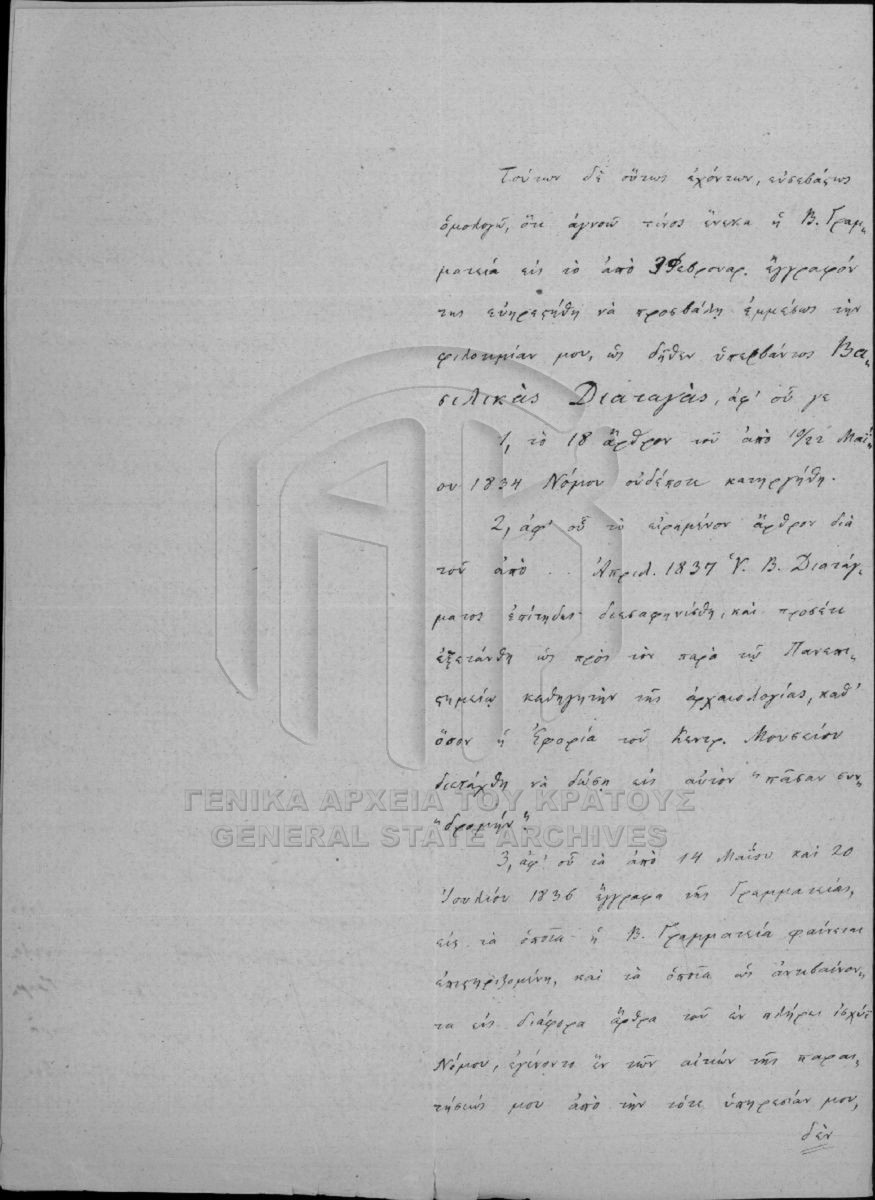 Τούτων δὲ οὕτως ἐχόντων, εὐσεβάστως
ὁμολογῶ, ὅτι ἀγνοῶ τίνος ἕνεκα ἡ Β. Γραμ-
ματεία εἰς τὸ ἀπὸ 3 Φεβρουαρ. ἔγγραφόν
της εὐηρεστήθη νὰ προσβάλῃ ἐμμέσως τὴν
φιλοτιμίαν μου, ὡς δῆθεν ὑπερβάντος Βα-
σιλικὰς Διαταγὰς, ἀφ' οὗ γε
1, τὸ 18 ἄρθρον τοῦ ἀπὸ 10/22 Μαΐ-
ου 1834 Νόμου οὐδέποτε κατηργήθη.
2, ἀφ' οὗ τὸ εἰρημένον ἄρθρον διὰ
τοῦ ἀπὸ .. Ἀπριλ. 1837 Ὑ. Β. Διατάγ-
ματος ἐπίτηδες διεσαφηνίσθη, καὶ προσέτι
ἐξετάνθη ὡς πρὸς τὸν παρὰ τῷ Πανεπι-
στημείῳ καθηγητὴν τῆς ἀρχαιολογίας, καθ'
ὅσον ἡ Ἐφορία τοῦ Κεντρ. Μουσείου
διετάχθη νὰ δώσῃ εἰς αὐτὸν "πᾶσαν συν-
"δρομήν".
ΓΕΝΙΚΑ ΑΡΧΕΙΑ ΤΟΥ ΚΡΑΤΟΥΣ
GENERAL STATE ARCHIVES
3, ἀφ' οὗ τὰ ἀπὸ 14 Μαΐου καὶ 20
Ἰουλίου 1836 ἔγγραφα τῆς Γραμματείας,
εἰς τὰ ὁποῖα ἡ Β. Γραμματεία φαίνεται
ἐπιστηριζομένη, καὶ τὰ ὁποῖα ὡς ἀντιβαίνον-
τα εἰς διάφορα ἄρθρα τοῦ ἐν πλήρει ἰσχύϊ
Νόμου, ἐγένοντο ἓν τῶν αἰτιῶν τῆς παραι-
τήσεώς μου ἀπὸ τὴν τότε ὑπηρεσίαν μου,
δὲν